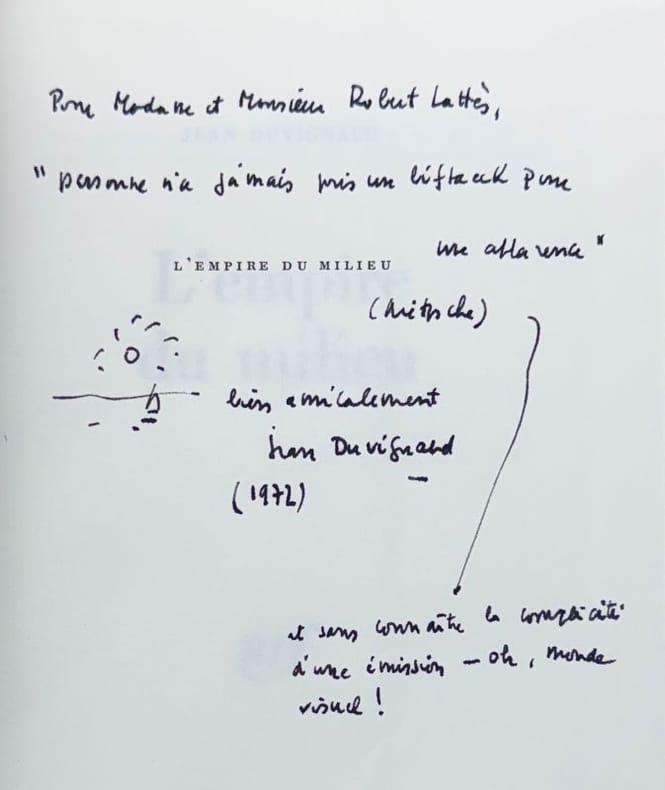 Pour Madame et Monsieur Robert Lattès,
" personne n'a jamais pris un bifteack pour
une apparence "
L'EMPIRE DU MILIEU
(Nietzsche)
bien amicalement
Jean Duvignaud
(1972)
et sans connaître la complicité
d'une émission – oh, monde
visuel !
JEAN DUVIGNAUD
L'empire
du milieu
nrf